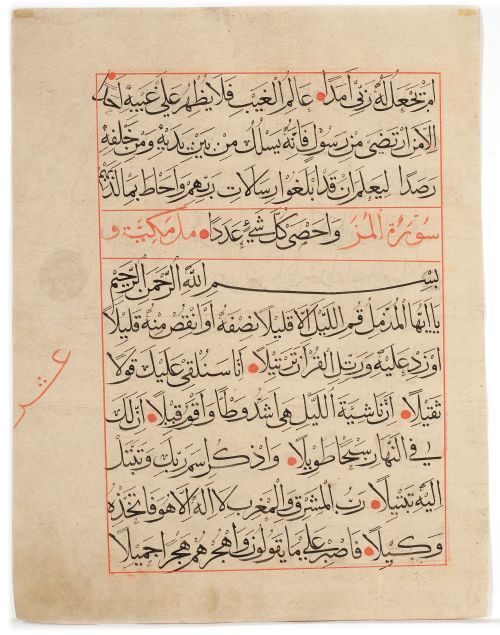 ام يجعل له ربي امدا عالم الغيب فلا يظهر على غيبه احدا
الا من ارتضى من رسول فانه يسلك من بين يديه ومن خلفه
رصدا ليعلم ان قد ابلغوا رسالات ربهم واحاط بما لديهم
سورة المز واحصى كل شئ عددا مل مكية و
بسم الله الرحمن الرحيم
يا ايها المزمل قم الليل الا قليلا نصفه او انقص منه قليلا
او زد عليه ورتل القران ترتيلا انا سنلقى عليك قولا
ثقيلا ان ناشية الليل هى اشد وطأ واقوم قيلا ان لك
فى النهار سبحا طويلا واذكر اسم ربك وتبتل
اليه تبتيلا رب المشرق والمغرب لا اله الا هو فاتخذه
وكيلا فاصبر على ما يقولون واهجرهم هجرا جميلا
عشر